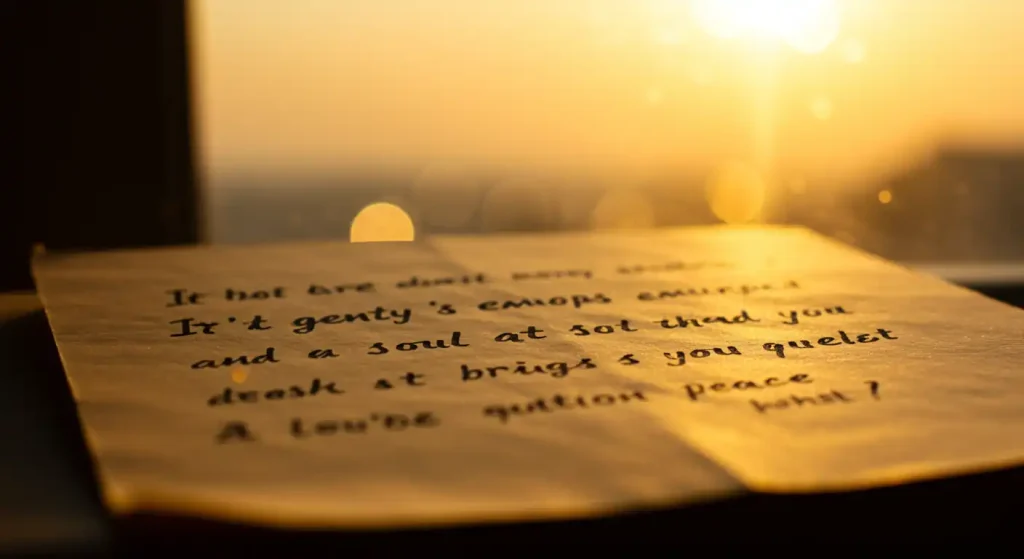 It hot are
Ir't genty 's emops emurped
and a soul at sot thad you
deask st brigs s you quelet
A lou'de quttion peace
what ?